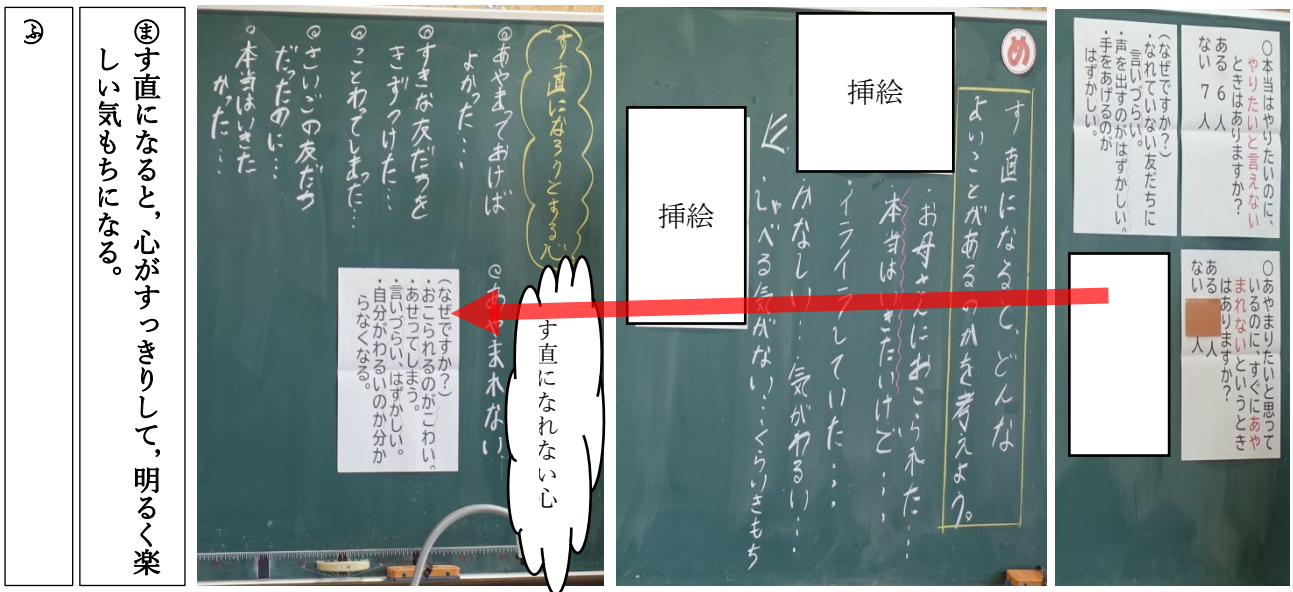 ○本当はやりたいのに、
やりたいと言えない
ときはありますか?
ある 6 人
ない 7 人
(なぜですか?)
・なれていない友だちに
言いづらい。
・声を出すのがはずかしい。
・手をあげるのが
はずかしい。
○あやまりたいと思って
いるのに、すぐにあや
まれないというとき
はありますか?
ある 人
ない 人
め
す直になると、どんな
よいことがあるのかを考えよう。
挿絵
・お母さんにおこられた・・・
・本当はいきたいけど・・・
・イライラしていた・・・
かなしい・・・気がわるい・・・
・しゃべる気がない・・・くらいきもち
挿絵
す直になろうとする心
◎あやまっておけば
よかった・・・
◎すきな友だちを
きずつけた・・・
◎ことわってしまった・・・
◎さいごの友だち
だったのに・・・
○本当はいきた
かった・・・
す直になれない心
◎あやまれない
(なぜですか?)
・おこられるのがこわい。
・あせってしまう。
・言いづらい、はずかしい。
・自分がわるいのか分か
らなくなる。
㋮す直になると,心がすっきりして,明るく楽
しい気もちになる。
㋫